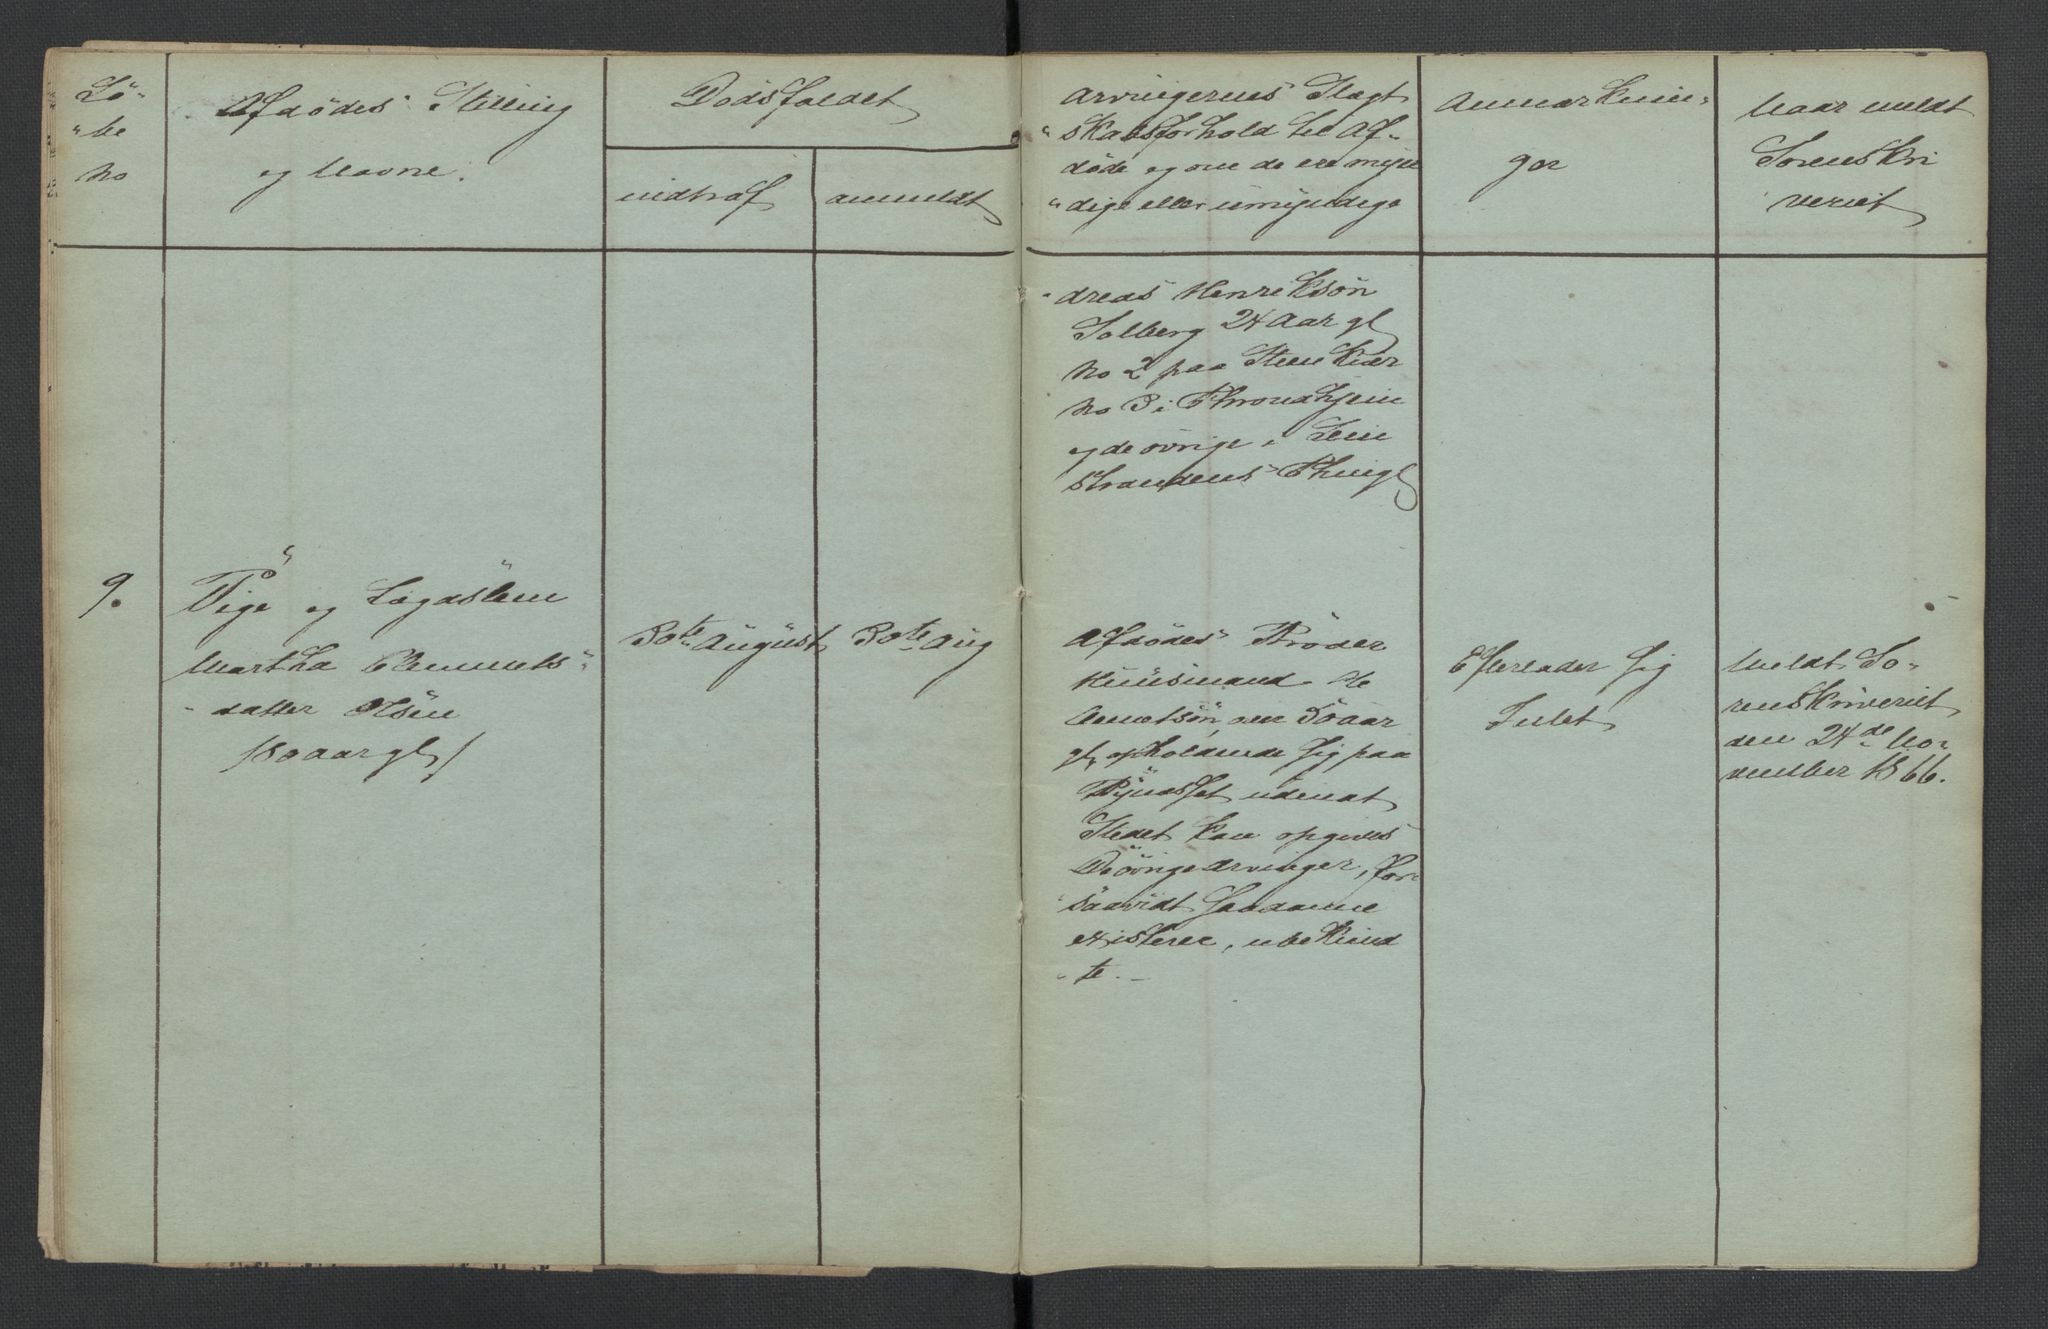 Lö-
be
No
Afdödes Stilling
og Navne.
Dödsfaldet
indtraf
anmeldt
Arvingernes Slægt
skabsforhold til Af-
döde og om de ere myn
dige eller umyndige
Anmærknin-
ger
Naar meldt
Sorenskri
veriet
dreas Henriksön
Solberg 24 Aar gl
No 2 paa Steenkiær
No 3 i Throndhjem
og de övrige i Lein
strandens Thingl
9.
Pige og Lægdslem
Martha Clemmets-
datter Ölsen
/80 aar gl/
30te August
30te Aug
Afdödes Bröder
Huusmand
om 50 aar
gl, opholdende sig paa
Bynæsset uden at
Stedet kan opgives
De övrige Arvinger, for-
saavidt saadanne
existerer, ubekiend
te. -
Efterlader sig
Intet
Meldt So-
renskriveriet
den 24de No-
vember 1866.